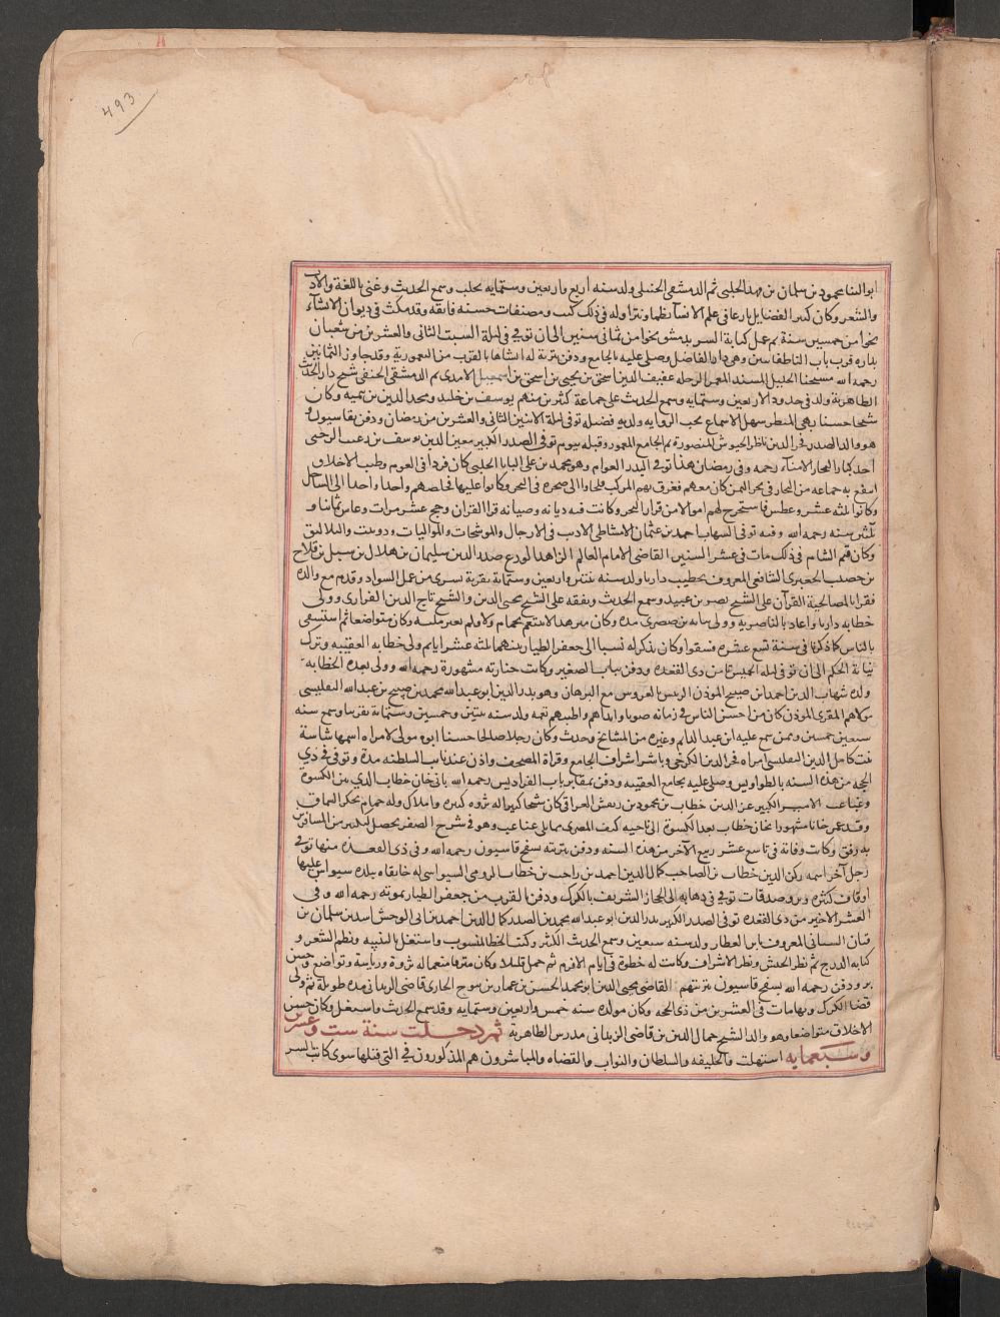 493
ابو الثنا محمود بن سلمان بن فهد الحلبي ثم الدمشقي الحنبلي ولد سنه أربع واربعين وستمايه بحلب وسمع الحديث وعني باللغة والادب
والشعر وكان كثير الفضايل بارعا في علم الانشآ نظما ونثرا وله في ذلك كتب ومصنفات حسنه فايقه وقد مكث في ديوان الانشآء
نحوا من خمسين سنة ثم عمل كتابة السر بدمشق نحوا من ثماني سنين الى ان توفي في ليلة السبت الثاني والعشرين من شعبان
بداره قرب باب الناطفانيين وهي دار القاضي الفاضل وصلي عليه بالجامع ودفن بتربة له انشاها بالقرب من اليغمورية وقد جاوز الثمانين
رحمه الله شيخنا الجليل المسند المعمر الرحله عفيف الدين اسحق بن يحيى بن اسحق بن ابراهيم بن اسمعيل الامدي ثم الدمشقي الحنفي شيخ دار الحديث
الظاهرية ولد في حدود الاربعين وستمايه وسمع الحديث على جماعة كثيرين منهم يوسف بن خليل ومجد الدين بن تيميه وكان
شيخا حسنا بهي المنظر سهل الاسماع يحب الروايه ولديه فضيله توفي ليلة الاثنين الثاني والعشرين من رمضان ودفن بقاسيون و
هو والد الصدر فخر الدين ناظر الجيوش المنصورة ثم الجامع المعمور وقبله بيوم توفي الصدر الكبير معين الدين يوسف بن الرحبي
احد كبار التجار الامنآء رحمه وفي رمضان هذا توفي البدر العوام وهو محمد بن علي البابا الحلبي كان فردا في العوم وطيب الاخلاق
انتفع به جماعه من التجار في بحر اليمن كان معهم فغرق بهم المركب فلجاوا الى صخره في البحر وكانوا عليها فخلصهم واحدا واحدا الى الساحل
وكانوا ثلثه عشر وغطس فاستخرج لهم اموالا من قرار البحر وكانت فيه ديانه وصيانه قرا القران وحج عشر مرات وعاش ثمانيا و
ثلثين سنه رحمه الله وفيه توفي الشهاب احمد بن عثمان الامشاطي الادب في الازجال والموشحات والمواليات ودوبيت والبلاليق
وكان قيم الشام في ذلك مات في عشر الستين القاضي الامام العالم الزاهد الورع صدر الدين سليمان بن هلال بن شبل بن فلاح
بن خصيب الجعبري الشافعي المعروف بخطيب داريا ولد سنه ثنتين واربعين وستمايه بقرية بسرى من عمل السواد وقدم مع والده
فقرا بالصالحية القرآن على الشيخ نصر بن عبيد وسمع الحديث وتفقه على الشيخ محيي الدين والشيخ تاج الدين الفزاري وولي
خطابه داريا واعاد بالناصريه وولي نيابه بن صصرى مده وكان متزهدا لا يتنعم بحمام ولا وكان متواضعا ثم استسقى
بالناس كما ذكرنا في سنة تسع عشره فسقوا وكان يذكر له نسبا الى جعفر الطيار بينهما ثلثه عشر ابا ثم ولي خطابه العقيبه وترك
نيابة الحكم الى ان توفي ليله الخميس ثامن ذي القعده ودفن بباب الصغير وكانت جنازته مشهورة رحمه الله وولي بعده الخطابه
ولده شهاب الدين احمد بن صبيح المؤذن الرئيس العروس مع البرهان وهو بدر الدين ابو عبد الله محمد بن صبيح بن عبد الله التفليسي
مولاهم المقري المؤذن كان من احسن الناس في زمانه صوتا واطيبهم نغمه ولد سنه ثنتين وخمسين وستمايه تقريبا وسمع سنه
سبع وخمسين وممن سمع عليه ابن عبد الدايم وغيره من المشايخ وحدث وكان رجلا صالحا حسنا ابوه مولى لامراه اسمها شامة
بنت كامل الدين التفليسي امراه فخر الدين الكرخي وباشر اشراف الجامع وقراة المصحف واذن عند نايب السلطنه مدة وتوفي في ذي
الحجه من هذه السنه بالطواويس وصلي عليه بجامع العقيبه ودفن بمقابر باب الفراديس رحمه الله باني خان خطاب الذي بين الكسوة
وغباغب الامير الكبير عز الدين خطاب بن محمود بن العراقي كان شيخا كبيرا له ثروه كبيره واملاك وله حمام بحكر السماق
وقد عمر خانا مشهورا بخان خطاب بعد الكسوة الى ناحيه كتف المصري مما يلي غباغب وهو في شرح الصفر يحصل لكثير من المسافرين
به رفق وكانت وفاته في تاسع عشر ربيع الآخر من هذه السنه ودفن بتربته بسفح قاسيون رحمه الله وفي ذي القعده منها توفي
رجل آخر اسمه ركن الدين خطاب بن الصاحب كمال الدين احمد بن اخت بن خطاب الرومي السيواسي له خانقاه ببلده سيواس عليها
اوقاف كثيره وبر وصدقات توفي في ذهابه الى الحجاز الشريف بالكرك ودفن بالقرب من جعفر الطيار بموته رحمه الله وفي
العشر الاخير من ذي القعده توفي الصدر الكبير بدر الدين ابو عبد الله محمد بن الصدر كمال الدين احمد بن ابي الوحش اسد بن سلمان بن
فتيان الشيباني المعروف بابن العطار ولد سنه سبعين وسمع الحديث الكثير وكتب الخط المنسوب واشتغل بالتنبيه ونظم الشعر و
كتابه الدرج ثم نظر الجيش ونظر الاشراف وكانت له حظوة في ايام الافرم ثم خمل قليلا وكان مترفا منعما له ثروة ورياسة وتواضع وحسن
بر ودفن رحمه الله بسفح قاسيون بتربتهم القاضي محيي الدين ابو محمد الحسن بن عمار بن متوج الحارثي قاضي الزبداني مدة طويلة ثم ولي
قضا الكرك وبها مات في العشرين من ذي الحجه وكان مولده سنه خمس واربعين وستمايه وقد سمع الحديث واشتغل وكان حسن
الاخلاق متواضعا وهو والد الشيخ جمال الدين بن قاضي الزبداني مدرس الظاهرية ثم دخلت سنة ست وعشرين
وسبعمايه استهلت والخليفه والسلطان والنواب والقضاه والمباشرون هم المذكورون في التي قبلها سوى كاتب السر